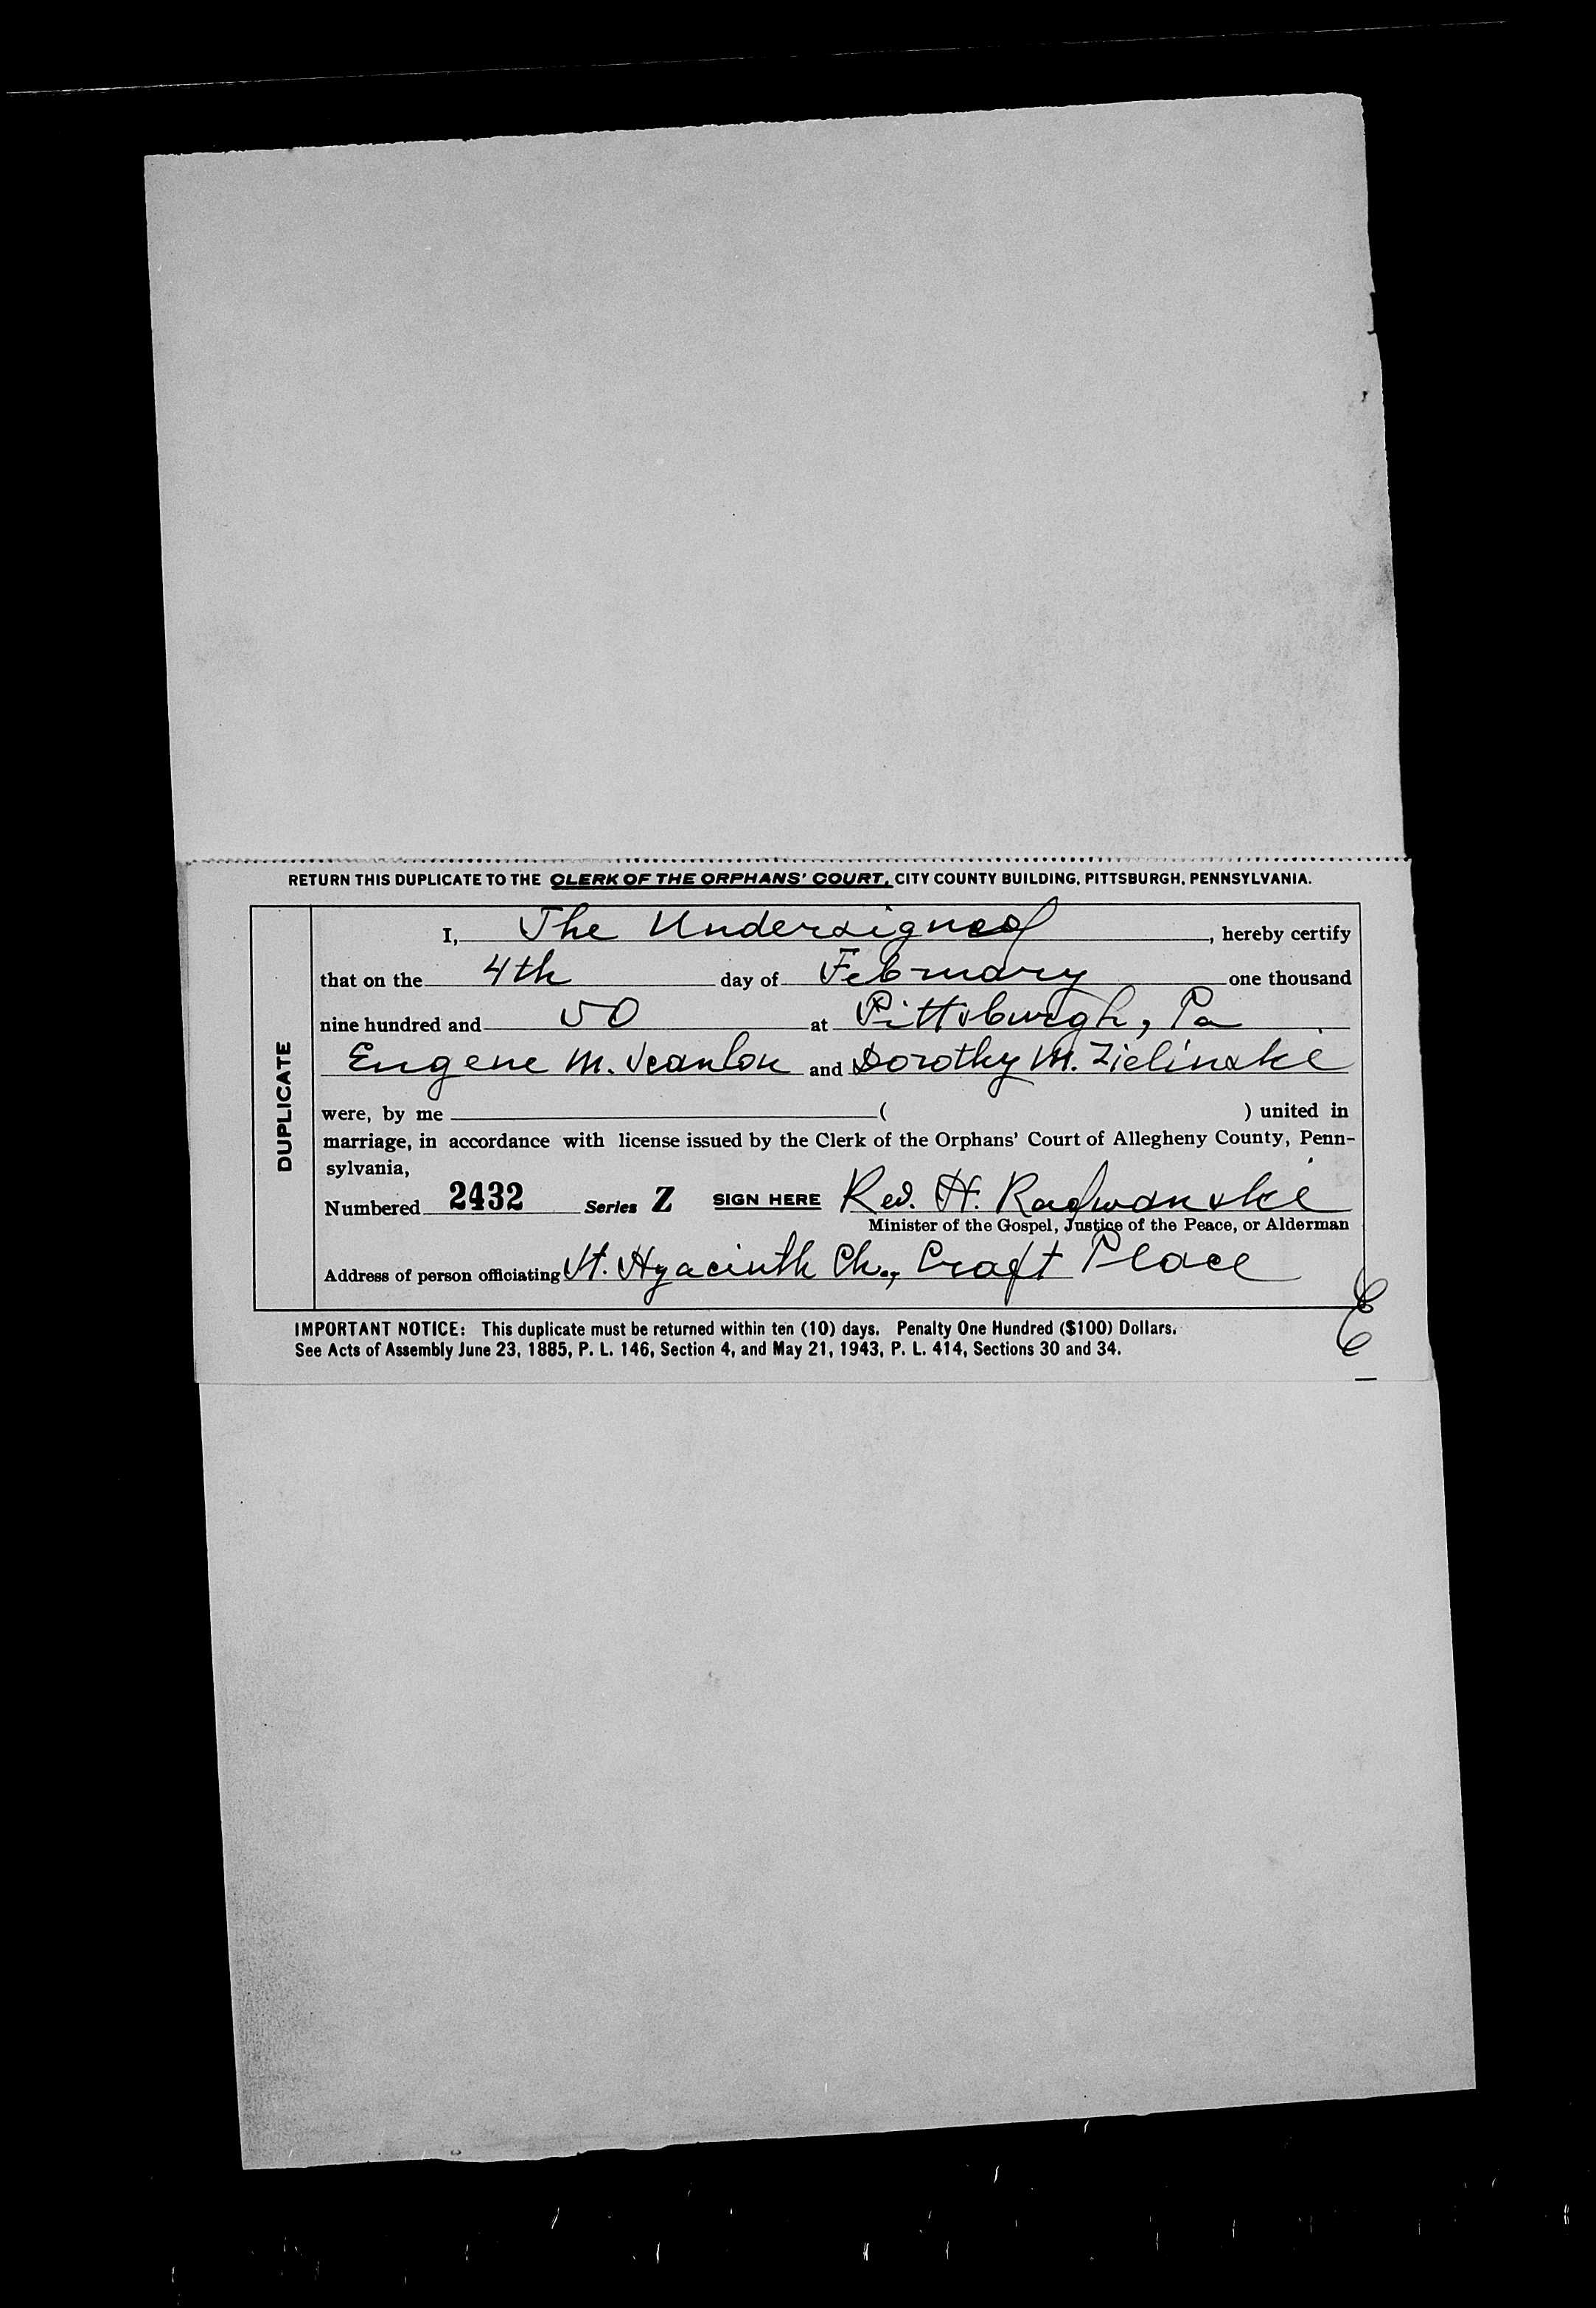 RETURN THIS DUPLICATE TO THE CLERK OF THE ORPHANS' COURT, CITY COUNTY BUILDING, PITTSBURGH, PENNSYLVANIA.
DUPLICATE
I, The Undersigned, hereby certify
that on the 4th day of February one thousand
nine hundred and 50 at Pittsburgh, Pa
Eugene M. Scanlon and Dorothy M. Zielinski
were, by me ( ) united in
marriage, in accordance with license issued by the Clerk of the Orphans' Court of Allegheny County, Penn-
sylvania,
Numbered 2432 Series Z SIGN HERE Rev. H. Radwanski
Minister of the Gospel, Justice of the Peace, or Alderman
Address of person officiating St. Hyacinth Ch., Craft Place
IMPORTANT NOTICE: This duplicate must be returned within ten (10) days. Penalty One Hundred ($100) Dollars.
See Acts of Assembly June 23, 1885, P. L. 146, Section 4, and May 21, 1943, P. L. 414, Sections 30 and 34.